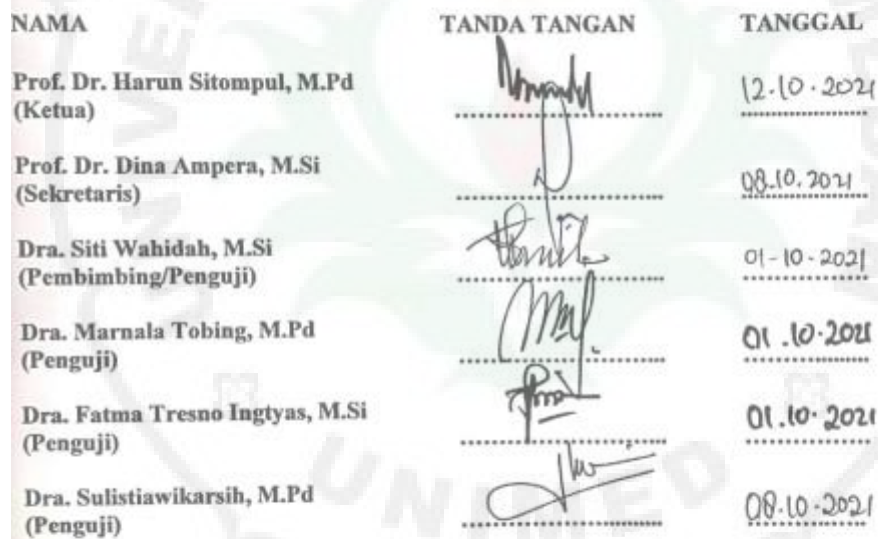 NAMA TANDA TANGAN TANGGAL
Prof. Dr. Harun Sitompul, M.Pd
(Ketua) 12.10.2021
Prof. Dr. Dina Ampera, M.Si
(Sekretaris) 08.10.2021
Dra. Siti Wahidah, M.Si 01-10-2021
(Pembimbing/Penguji)
Dra. Marnala Tobing, M.Pd 01.10.2021
(Penguji)
Dra. Fatma Tresno Ingtyas, M.Si 01.10.2021
(Penguji)
Dra. Sulistiawikarsih, M.Pd
(Penguji) 08.10.2021
UNIMED